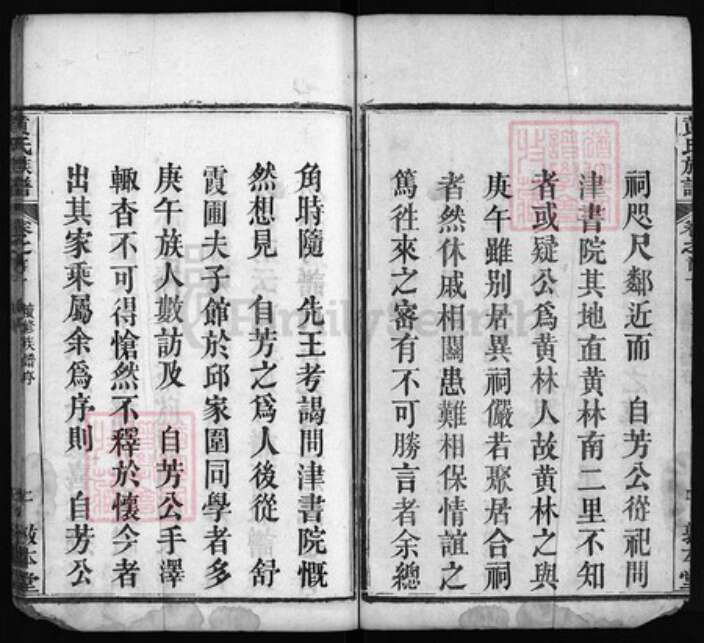 祠咫尺鄰近而　自芳公從祀問
津書院其地直黄林南二里不知
者或疑公爲黄林人故黄林之與
庚午雖别居異祠儼若聚居合祠
者然休戚相關患難相保情誼之
篤徃來之審有不可勝言者余總
角時隨　先王考謁問津書院慨
然想見　自芳之爲人後從　舒
霞圃夫子館於邱家圍同學者多
庚午族人數訪及　自芳公手澤
輙杳不可得愴然不釋於懷今者
出其家乘屬余爲序則　自芳公
黄氏族譜
卷之首
續修族譜序
敦本堂
FamilySearch